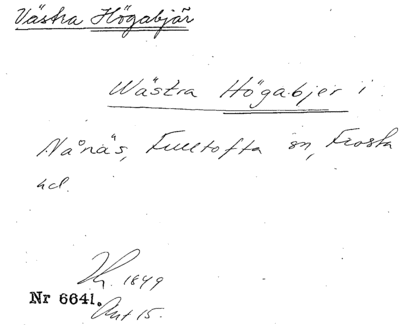 Västra Högabjär
Wästra Högabjer i
Nånäs, Fulltofta sn, Frosta
hd.
1849
Nr 6641.
Akt 15.